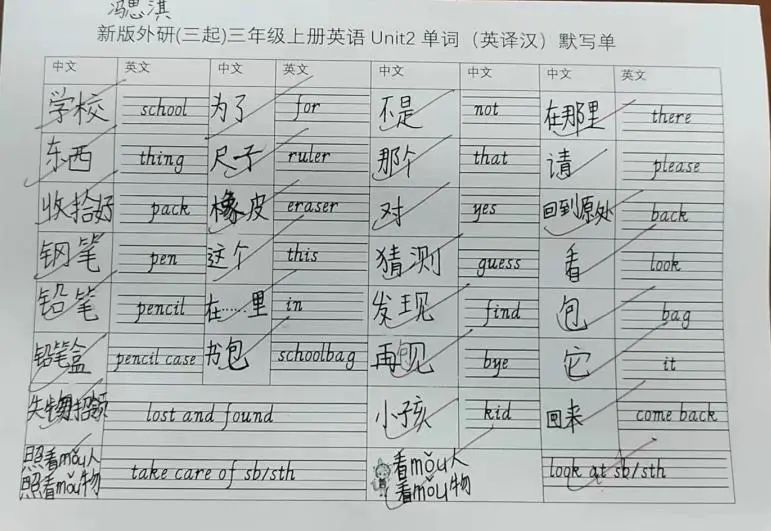 冯思淇
新版外研(三起)三年级上册英语 Unit2 单词（英译汉）默写单
中文 英文 中文 英文 中文 英文 中文 英文
学校 school 为了 for 不是 not 在那里 there
东西 thing 尺子 ruler 那个 that 请 please
收拾好 pack 橡皮 eraser 对 yes 回到原处 back
钢笔 pen 这个 this 猜测 guess 看 look
铅笔 pencil 在……里 in 发现 find 包 bag
铅笔盒 pencil case 书包 schoolbag 再见 bye 它 it
失物招领 lost and found 小孩 kid 回来 come back
照看mǒu人 看mǒu人
照看mǒu物 take care of sb/sth 看mǒu物 look at sb/sth